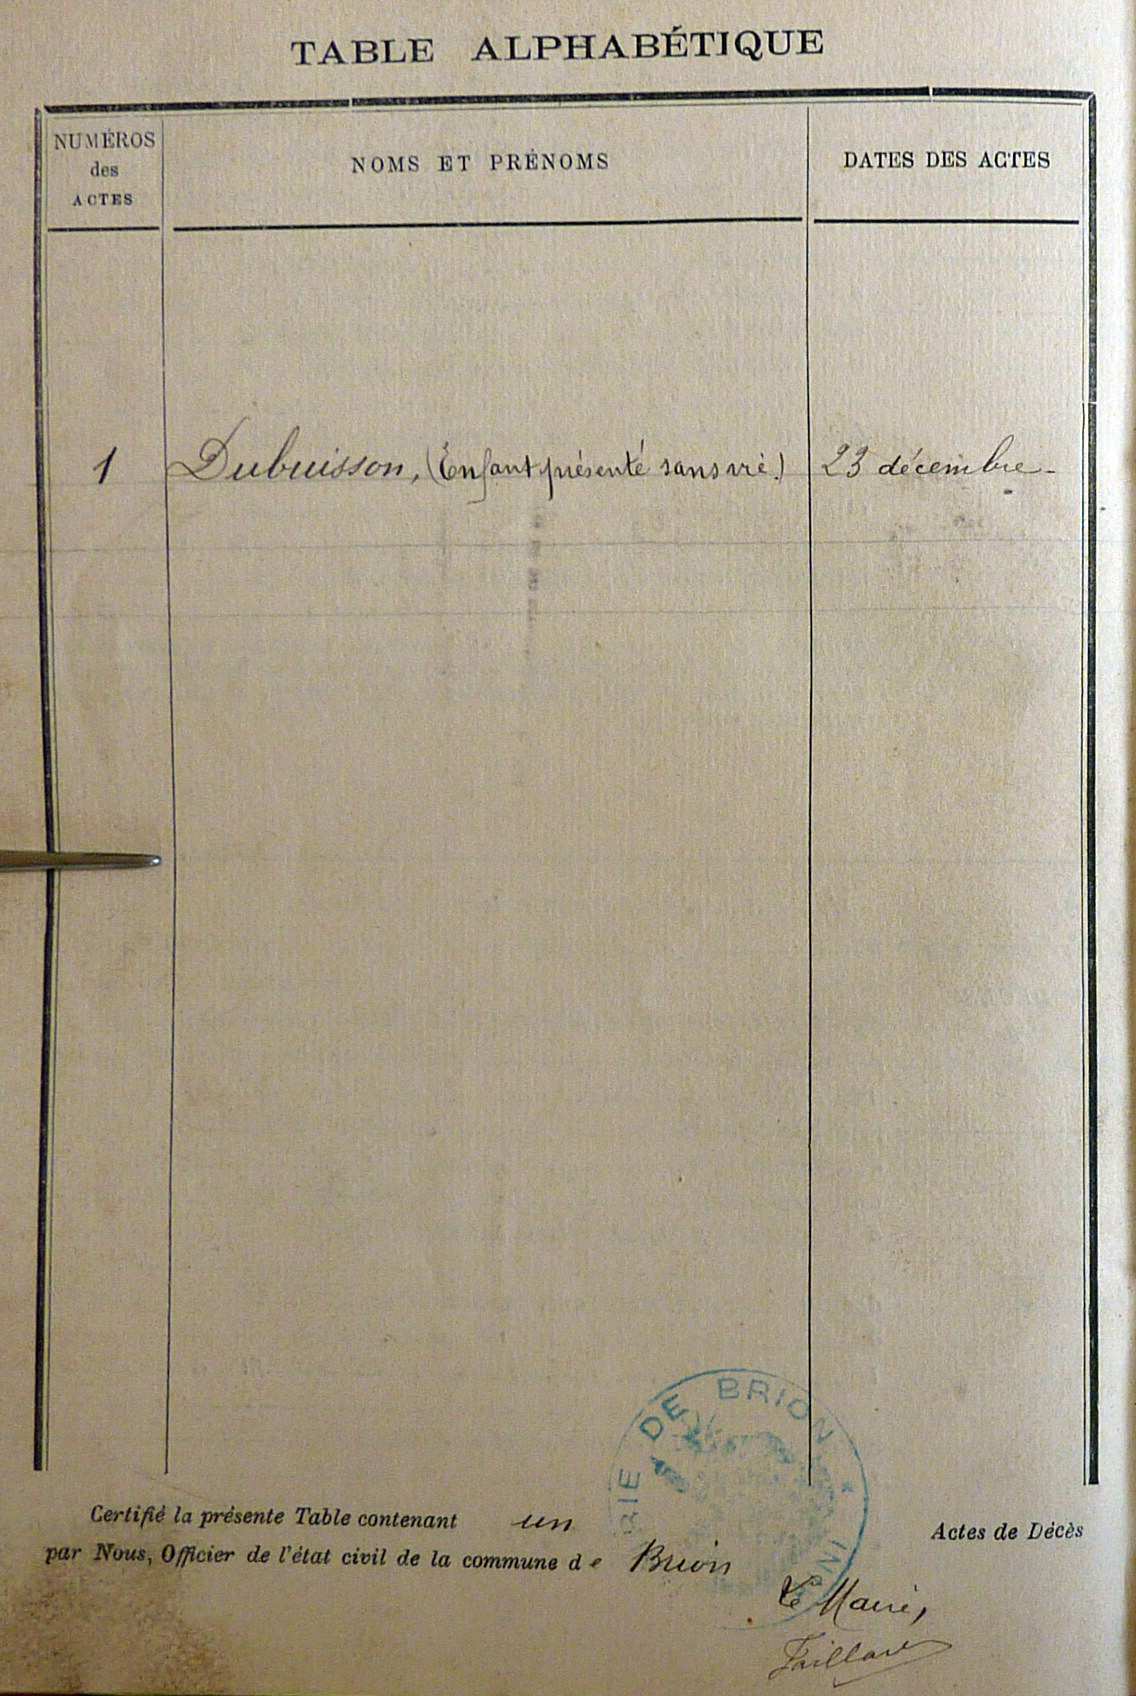 TABLE ALPHABÉTIQUE
NUMÉROS
des
ACTES
NOMS ET PRÉNOMS
DATES DES ACTES
1 Dubuisson, (Enfant présenté sans vie.) 23 décembre
DE BRION
Certifié la présente Table contenant un Actes de Décès
par Nous, Officier de l'état civil de la commune de Brion
Le Maire,